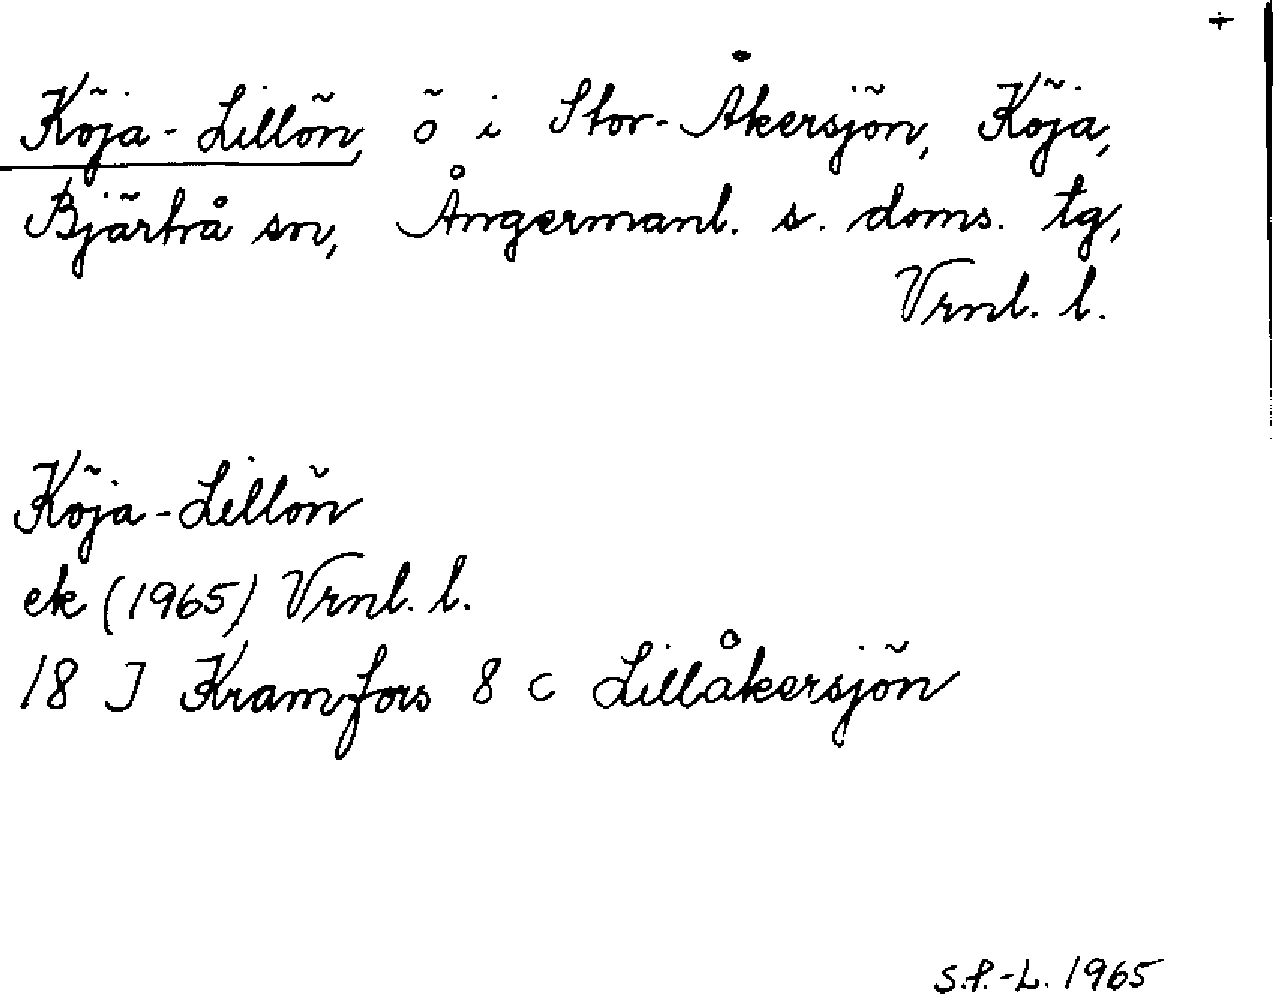 +
Köja-Lillön, ö i Stor-Åkersjön, Köja,
Bjärtrå sn, Ångermanl. s. doms. tg,
Vrnl. l.
Köja-Lillön
ek (1965) Vrnl. l.
18 J Kramfors 8 c Lillåkersjön
S.P.-L. 1965